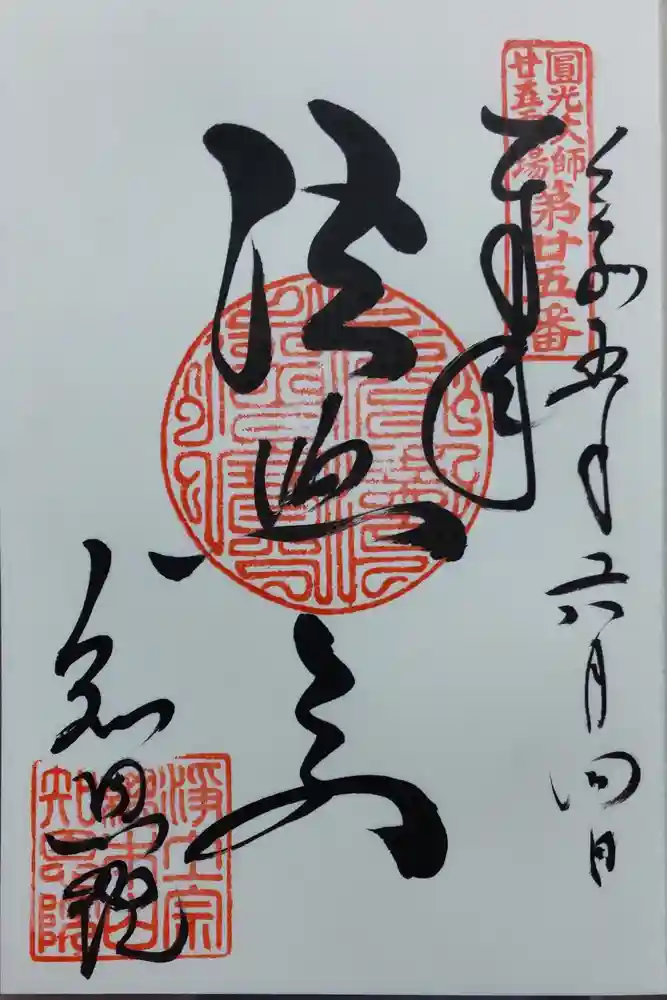 圓光大師
廿五霊場
第廿五番
奉拝
令和五年六月四日
法然上人
知恩院
淨土宗
總本山
知恩院